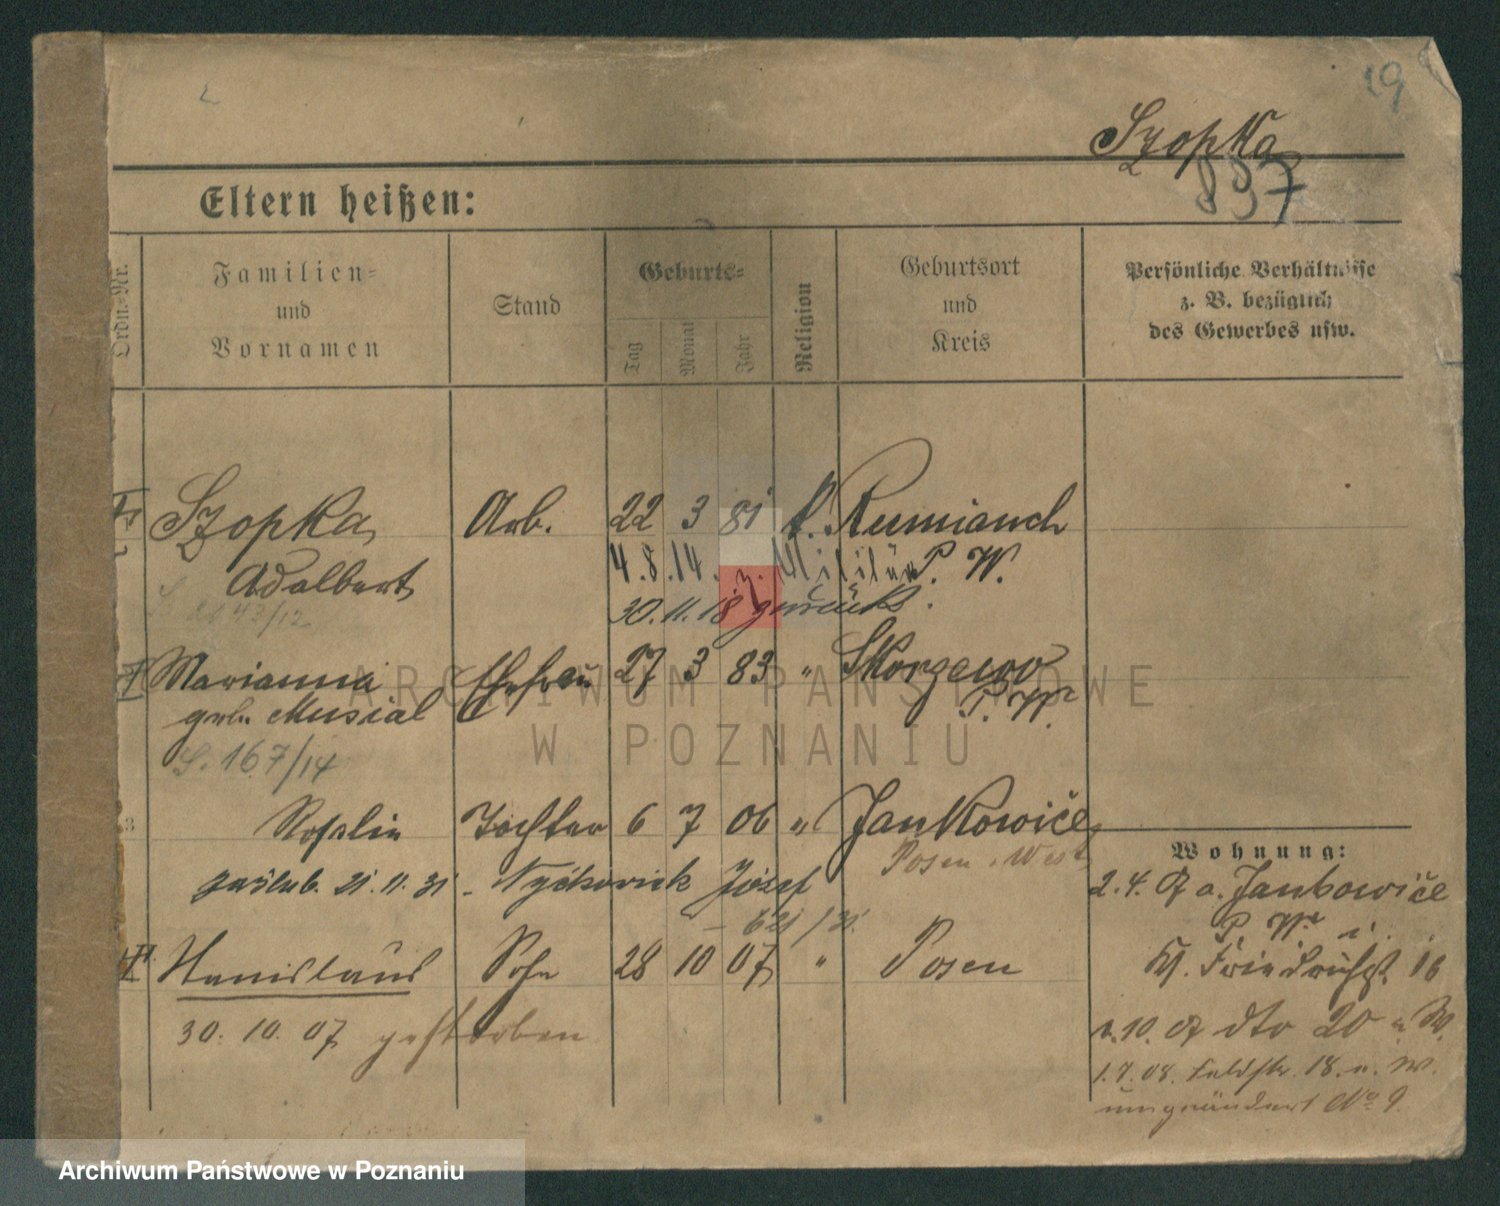 19
Szopka
837
Eltern heißen:
Ordn.-Nr.
Familien-
und
Vornamen
Stand
Geburts-
Tag
Monat
Jahr
Religion
Geburtsort
und
Kreis
Persönliche Verhältnisse
z. B. bezüglich
des Gewerbes usw.
Szopka Arb. 22 3 81 k. Rumianek
Adalbert P. W.
4.8.14. z. Militär
43/12 30.11.18 zurück.
Marianna Ehefrau 27 3 83 " Skorzewo
geb. Musial P. W.
S. 167/14
3 Rosalie Tochter 6 7 06 " Jankowice
Posen-West
21.11.31 - Józef
621/31
Stanislaus Sohn 28 10 07 " Posen
30. 10. 07 gestorben
Wohnung:
2.4.07 a. Jankowice
P. W. i.
Kl. Friedrichst. 16
1.10.07 dto 20 a. W.
1.7.08. Feldstr. 18. a. W.
umgeändert No 9.
ARCHIWUM PAŃSTWOWE
W POZNANIU
Archiwum Państwowe w Poznaniu